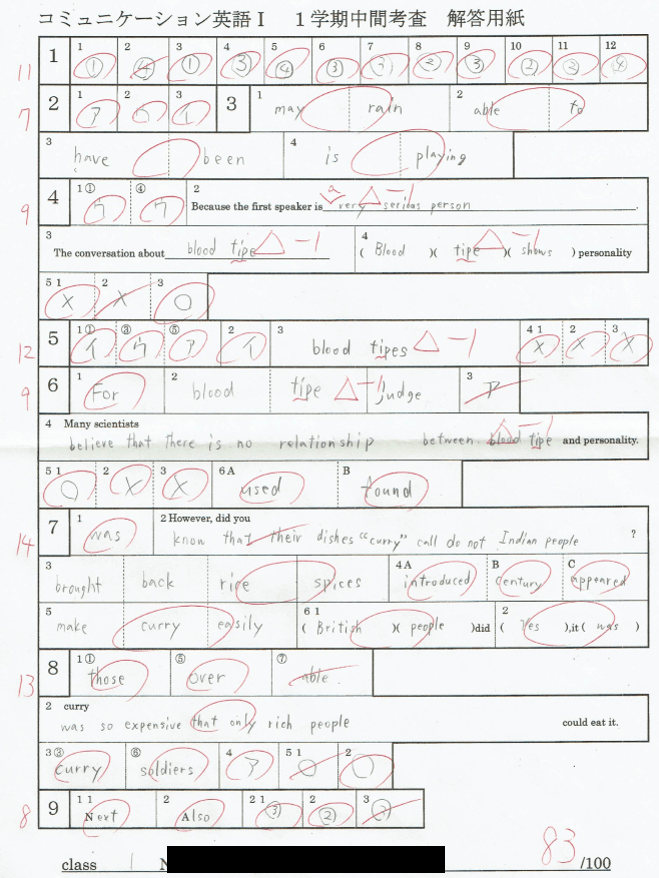 コミュニケーション英語Ⅰ 1学期中間考査 解答用紙
11 1 1 ① 2 ④ 3 ① 4 ③ 5 ④ 6 ③ 7 ③ 8 ② 9 ③ 10 ② 11 ② 12 ④
7 2 1 ア 2 ウ 3 イ 3 1 may rain 2 able to
3 have been 4 is playing
9 4 1① ウ ④ ウ 2 Because the first speaker is a very serious person △-1 .
3 The conversation about blood tipe △-1 4 ( Blood )( tipe △-1 )( shows ) personality
5 1 × 2 × 3 ○
12 5 1① イ ③ ウ ⑤ ア 2 イ 3 blood tipes △-1 4 1 × 2 × 3 ×
9 6 1 For 2 blood tipe △-1 judge 3 ア
4 Many scientists
believe that there is no relationship between blood tipe △-1 and personality.
5 1 ○ 2 × 3 × 6 A used B found
14 7 1 was 2 However, did you
know that their dishes "curry" call do not Indian people ?
3 brought back rice spices 4 A introduced B century C appeared
5 make curry easily 6 1 ( British )( people )did 2 ( Yes ),it ( was )
13 8 1① those ⑤ over ⑦ able
2 curry
was so expensive that only rich people could eat it.
3③ curry ⑥ soldiers 4 ア 5 1 ○ 2 ○
8 9 1 1 Next 2 Also 2 1 ③ 2 ② 3 ③
class 1 83 /100